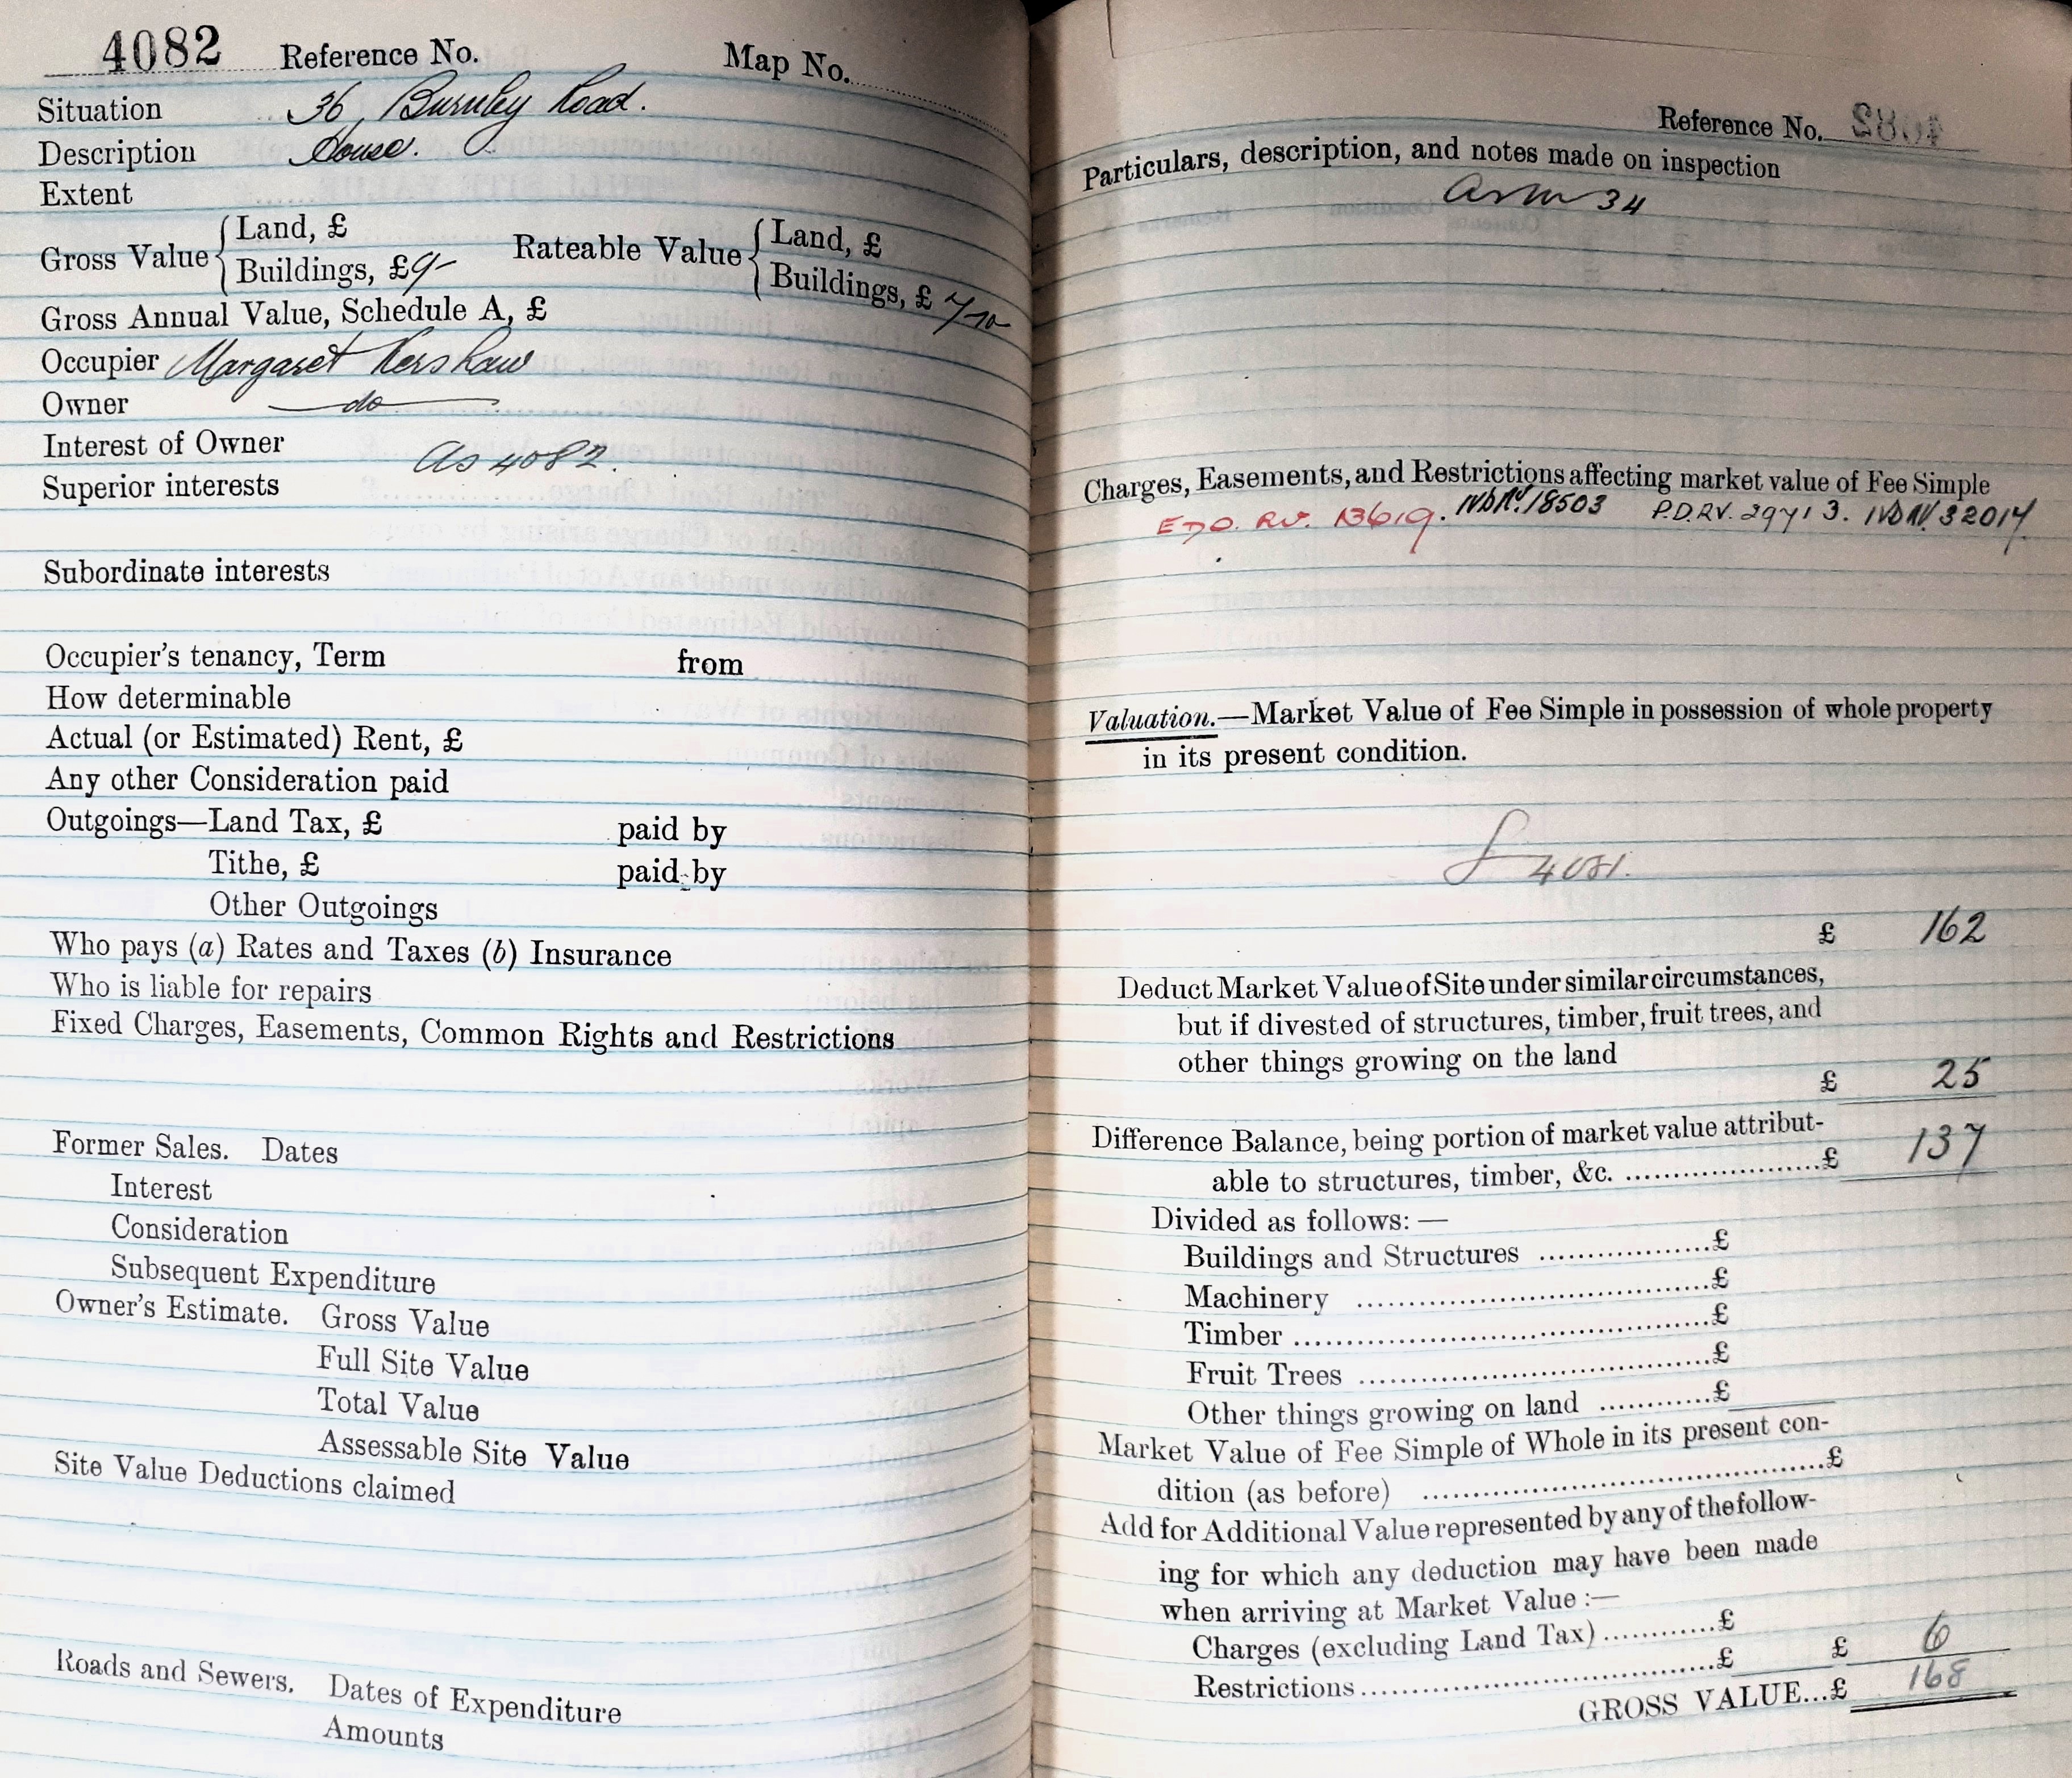 4082 Reference No. Map No.
Situation 36, Burnley Road.
Description House.
Extent
Gross Value { Land, £ Rateable Value { Land, £
Buildings, £ 9- Buildings, £ 7/10
Gross Annual Value, Schedule A, £
Occupier Margaret Kershaw
Owner do
Interest of Owner
as 4082.
Superior interests
Subordinate interests
Occupier's tenancy, Term from
How determinable
Actual (or Estimated) Rent, £
Any other Consideration paid
Outgoings—Land Tax, £ paid by
Tithe, £ paid by
Other Outgoings
Who pays (a) Rates and Taxes (b) Insurance
Who is liable for repairs
Fixed Charges, Easements, Common Rights and Restrictions
Former Sales. Dates
Interest
Consideration
Subsequent Expenditure
Owner's Estimate. Gross Value
Full Site Value
Total Value
Assessable Site Value
Site Value Deductions claimed
Roads and Sewers. Dates of Expenditure
Amounts
Reference No. 4082
Particulars, description, and notes made on inspection
34
Charges, Easements, and Restrictions affecting market value of Fee Simple
RV. 13619. 18503 P.D.RV. 29713. 32017
Valuation.—Market Value of Fee Simple in possession of whole property
in its present condition.
4081.
£ 162
Deduct Market Value of Site under similar circumstances,
but if divested of structures, timber, fruit trees, and
other things growing on the land
£ 25
Difference Balance, being portion of market value attribut-
able to structures, timber, &c. ....................£ 137
Divided as follows: —
Buildings and Structures ..................£
Machinery ......................................£
Timber ............................................£
Fruit Trees .....................................£
Other things growing on land ............£
Market Value of Fee Simple of Whole in its present con-
dition (as before) .............................................£
Add for Additional Value represented by any of the follow-
ing for which any deduction may have been made
when arriving at Market Value :—
Charges (excluding Land Tax) ............£
Restrictions.....................................£ £ 6
GROSS VALUE...£ 168